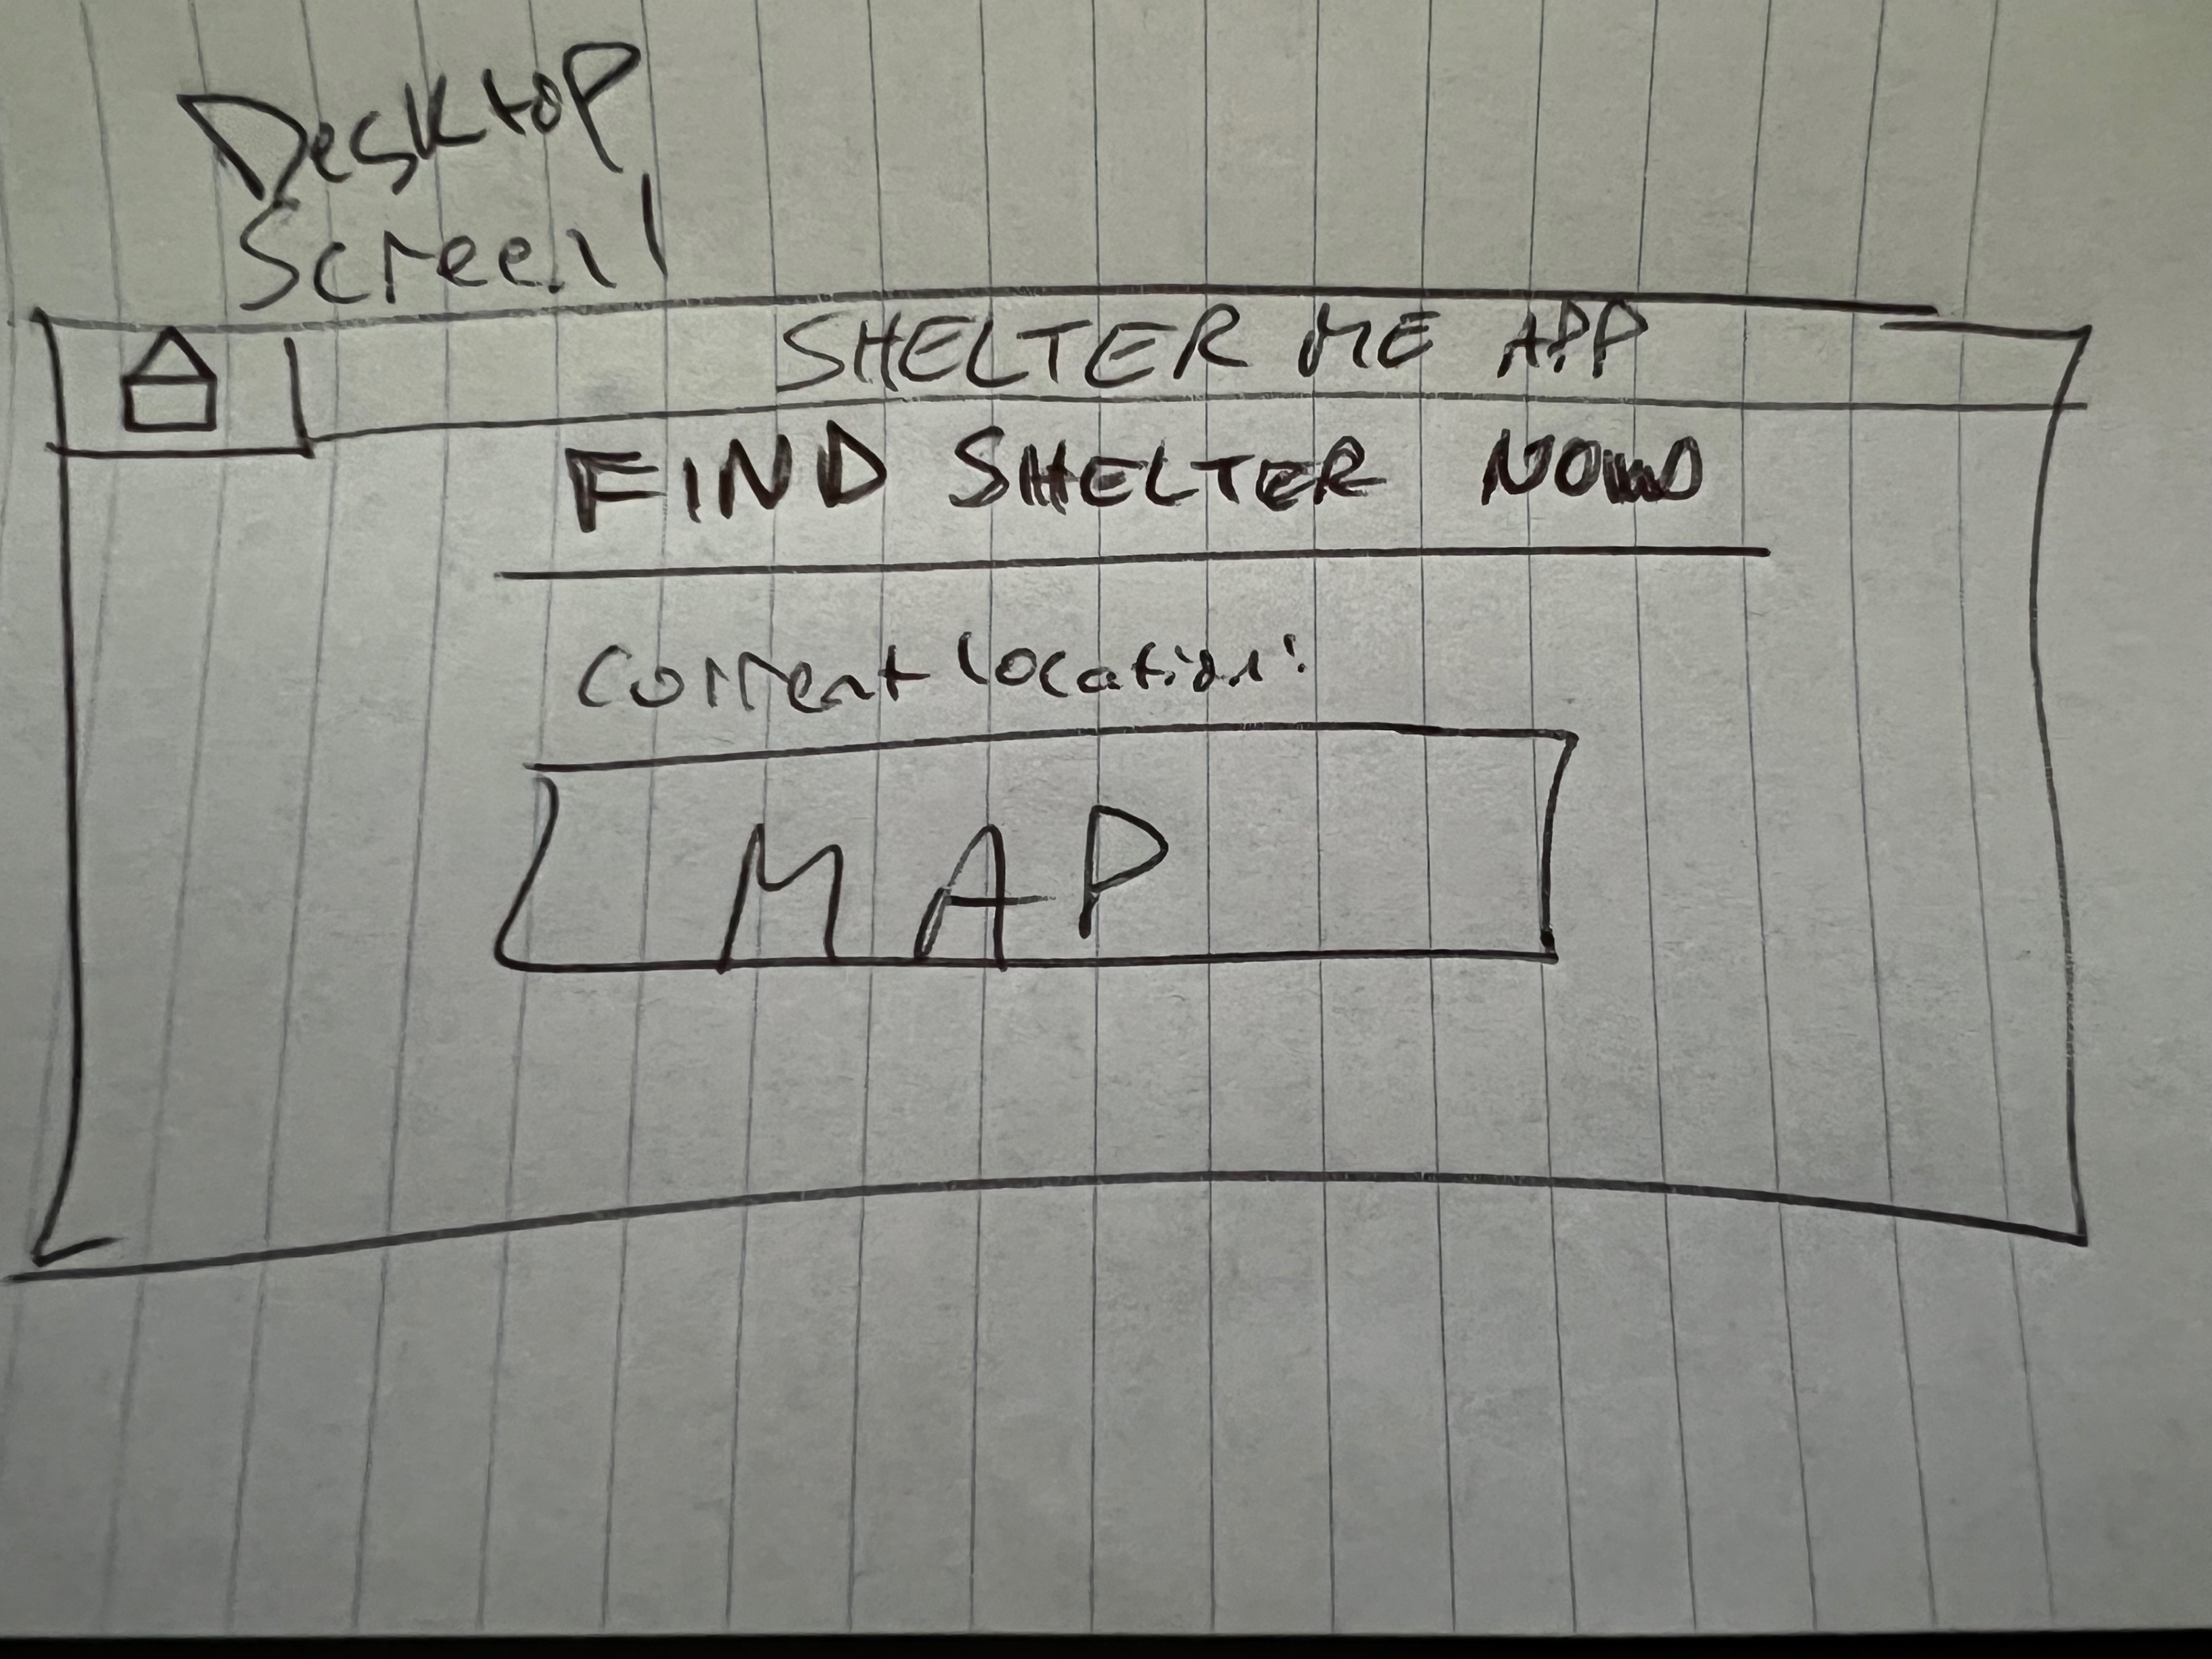 Desktop
Screen 1
SHELTER ME APP
FIND SHELTER NOW
Current location:
MAP